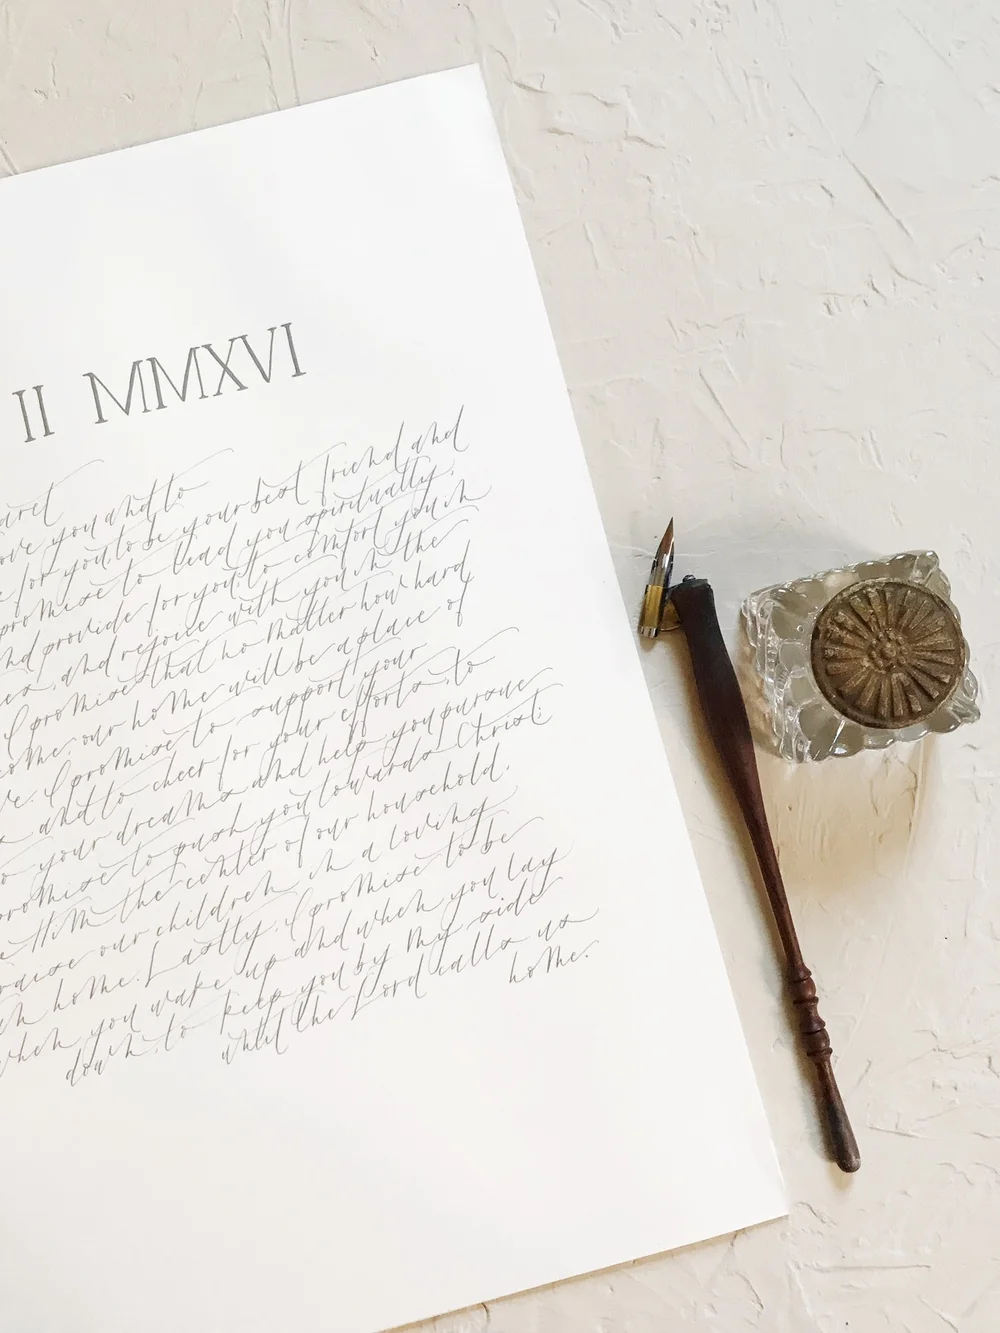 II MMXVI
you and to
for you, to be your best friend and
promise to lead you spiritually,
and provide for you, to comfort you in
and rejoice with you in the
I promise that no matter how hard
our home will be a place of
I promise to support your
and to cheer for your efforts, to
your dreams and help you pursue
promise to push you towards Christ;
Him the center of our household,
our children in a loving
home. Lastly, I promise to be
when you wake up and when you lay
down, to keep you by my side
until the Lord calls us
home.